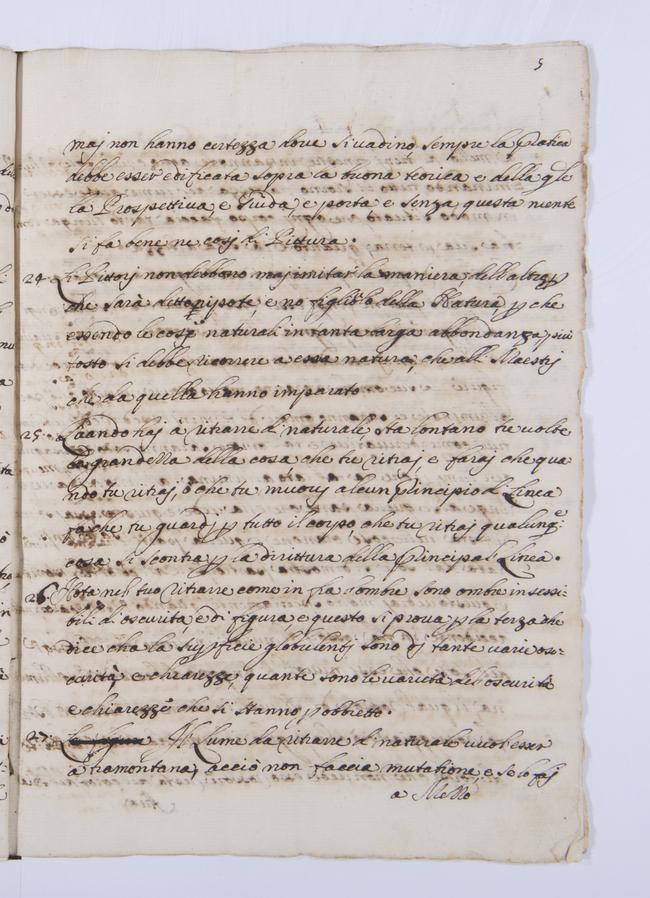 5
maj non hanno certezza doue si uadino sempre la Pratica
debbe esser edificata sopra la buona teorica e della qle
la Prospettiua, e Guida, e porta, e senza questa niente
si fa bene ne casj di Pittura.
24 I Pittorj non debbono maj imitar la maniera dell'altro pp
che sarà detto nipote, e nõ figliolo della Natura, p che
essendo le cose naturali in tanta larga abbondanza, piu
tosto si debbe ricorrere a essa natura, che alli Maestrj
che da quella hanno imparato.
25. Quando haj à ritrarre di naturale, sta lontano tre uolte
la grandezza della cosa, che tu ritraj, e faraj che qua-
ndo tu ritraj, ò che tu muouj alcun principio di Linea
fa che tu guardj p tutto il corpo, che tu ritraj qualunq:
cosa si scontra p la dirittura della principal Linea.
26 Nota nel tuo ritrarre come in fra l'ombre sono ombre insessi-
bili d'oscurita, e di figura e questo si proua p la terza che
dice cha la supficie globulentj sono dj tante uarie os-
curità, e chiarezze, quante sono le uarieta dell'oscurità
e chiarezze che li stanno p obbietto.
27. la figura Il Lume da ritrarre di naturale uuol esser
à tramontana, acciò non faccia mutatione, e se lo faj
a Mezzo